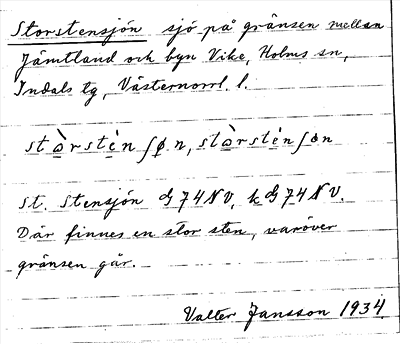 Storstensjön sjö på gränsen mellan
Jämtland och byn Vike, Holms sn,
Indals tg, Västernorrl. l.
stòrsténʃøn, stòrsténʃøn
St. Stensjön G74NV, kG74NV.
Där finnes en stor sten, varöver
gränsen går.
Valter Jansson 1934